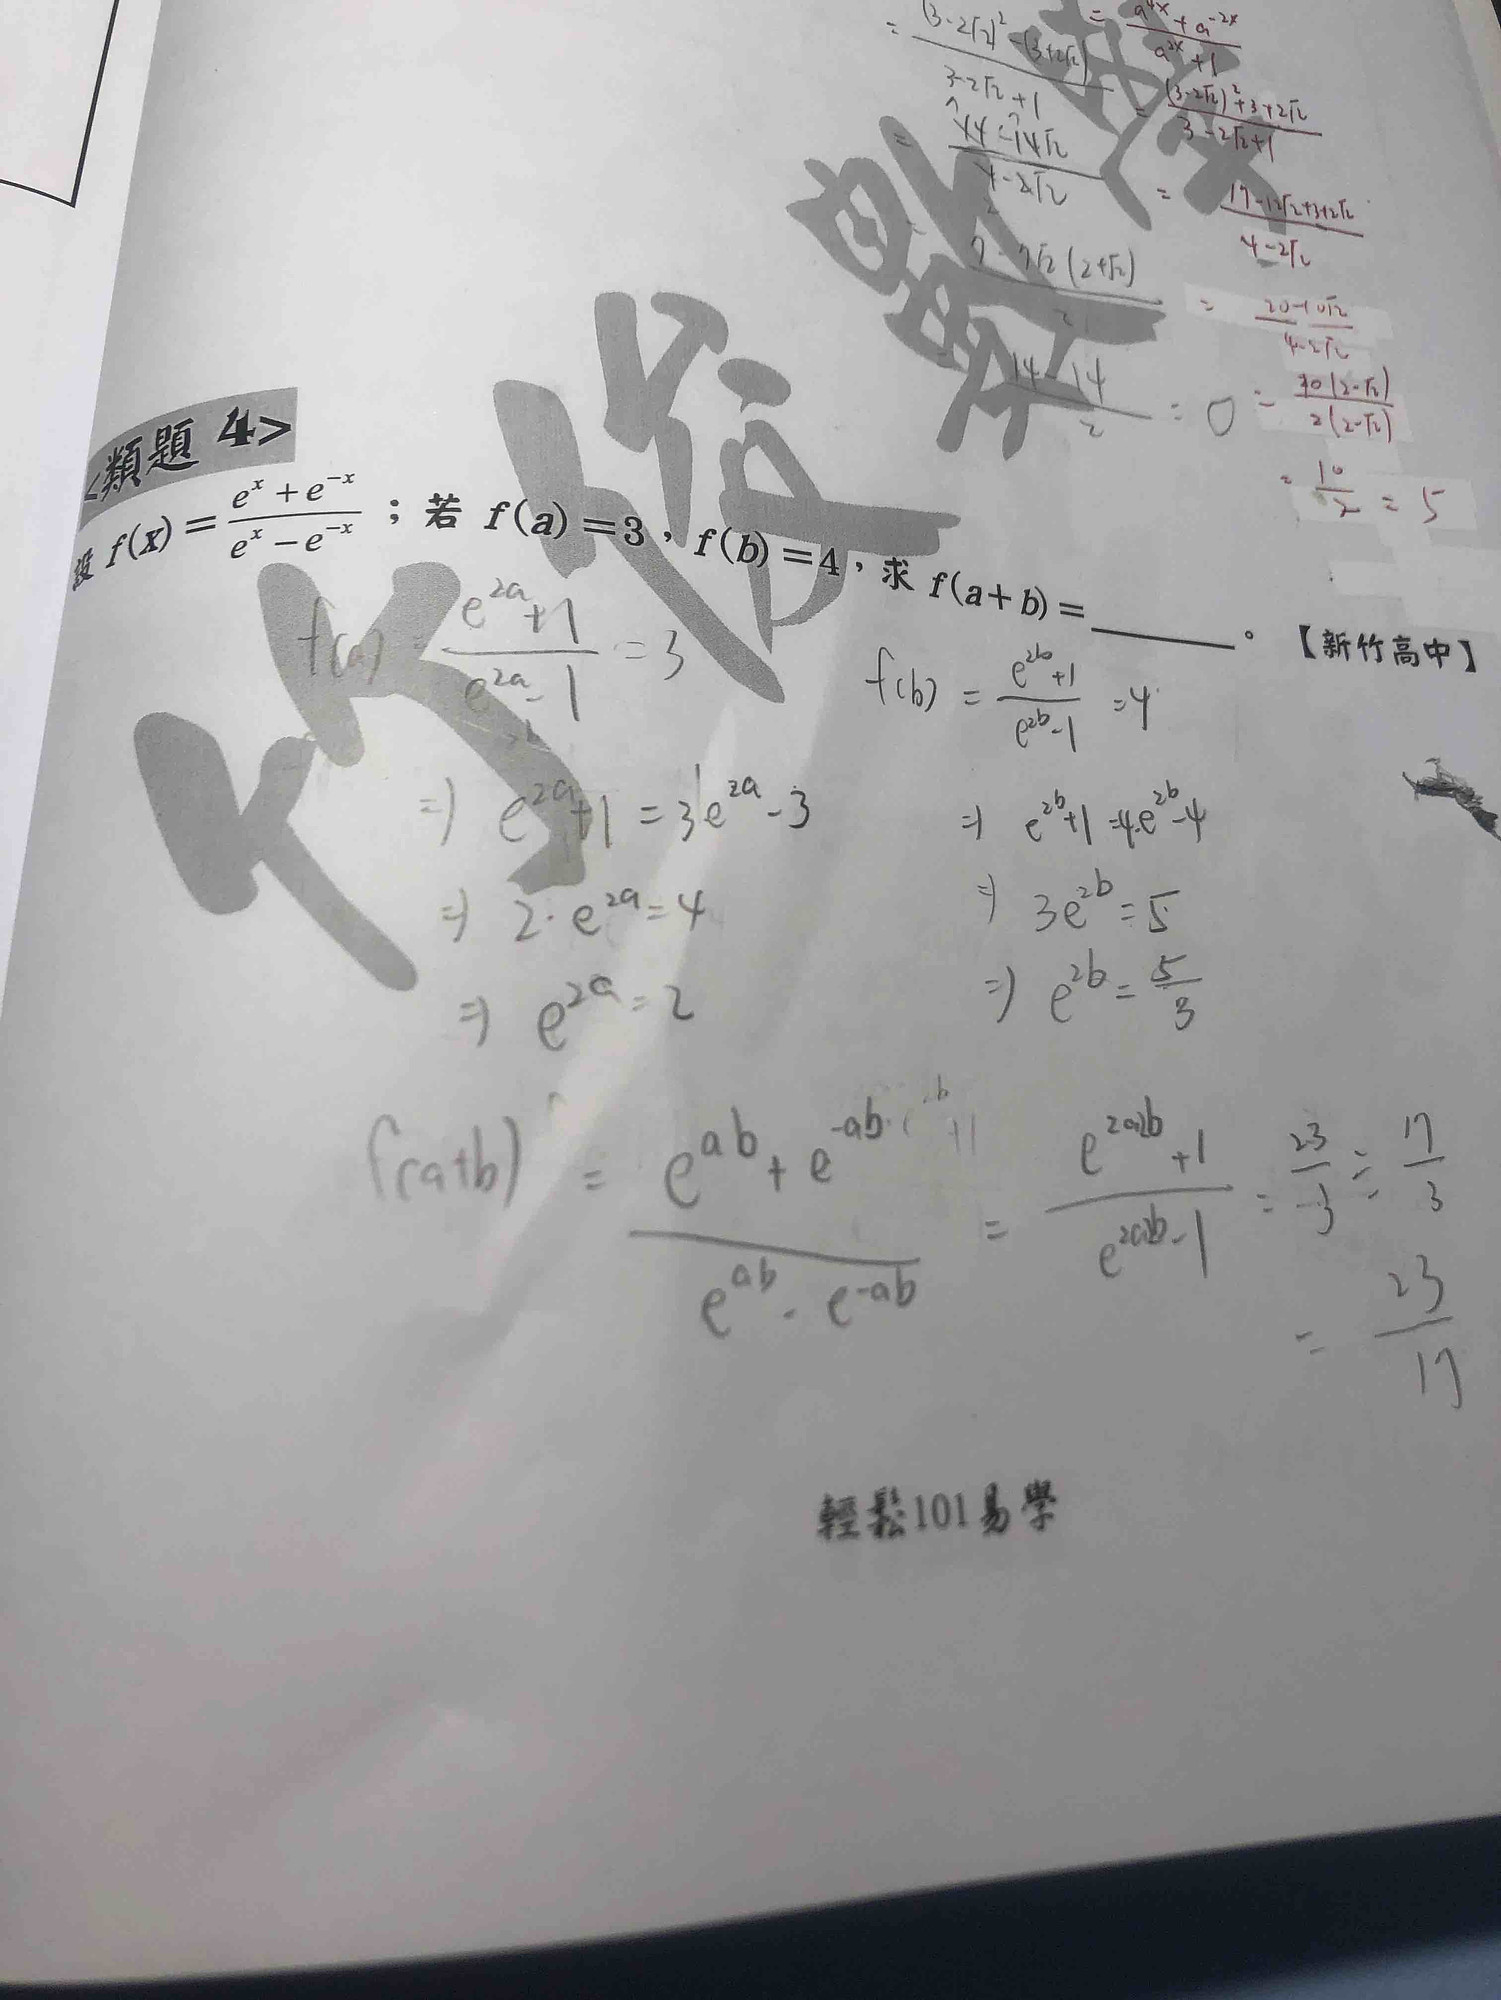 = \frac{(3-2\sqrt{2})^2-(3+2\sqrt{2})}{3-2\sqrt{2}+1}
= \frac{44-14\sqrt{2}}{4-2\sqrt{2}}
= \frac{7-7\sqrt{2}(2+\sqrt{2})}{2}
= \frac{14-14}{2} = 0
= \frac{a^{4x}+a^{-2x}}{a^{2x}+1}
= \frac{(3-2\sqrt{2})^2+3+2\sqrt{2}}{3-2\sqrt{2}+1}
= \frac{17-12\sqrt{2}+3+2\sqrt{2}}{4-2\sqrt{2}}
= \frac{20-10\sqrt{2}}{4-2\sqrt{2}}
= \frac{10(2-\sqrt{2})}{2(2-\sqrt{2})}
= \frac{10}{2} = 5
<類題 4>
設 f(x) = \frac{e^x+e^{-x}}{e^x-e^{-x}} ; 若 f(a) = 3 , f(b) = 4 , 求 f(a+b) = ______ 。 【新竹高中】
f(a) = \frac{e^{2a}+1}{e^{2a}-1} = 3
⇒ e^{2a}+1 = 3e^{2a}-3
⇒ 2·e^{2a} = 4
⇒ e^{2a} = 2
f(b) = \frac{e^{2b}+1}{e^{2b}-1} = 4
⇒ e^{2b}+1 = 4·e^{2b}-4
⇒ 3e^{2b} = 5
⇒ e^{2b} = \frac{5}{3}
f(a+b) = \frac{e^{ab}+e^{-ab}}{e^{ab}-e^{-ab}} = \frac{e^{2a2b}+1}{e^{2a2b}-1} = \frac{23}{3} ÷ \frac{17}{3}
= \frac{23}{17}
輕鬆101易學